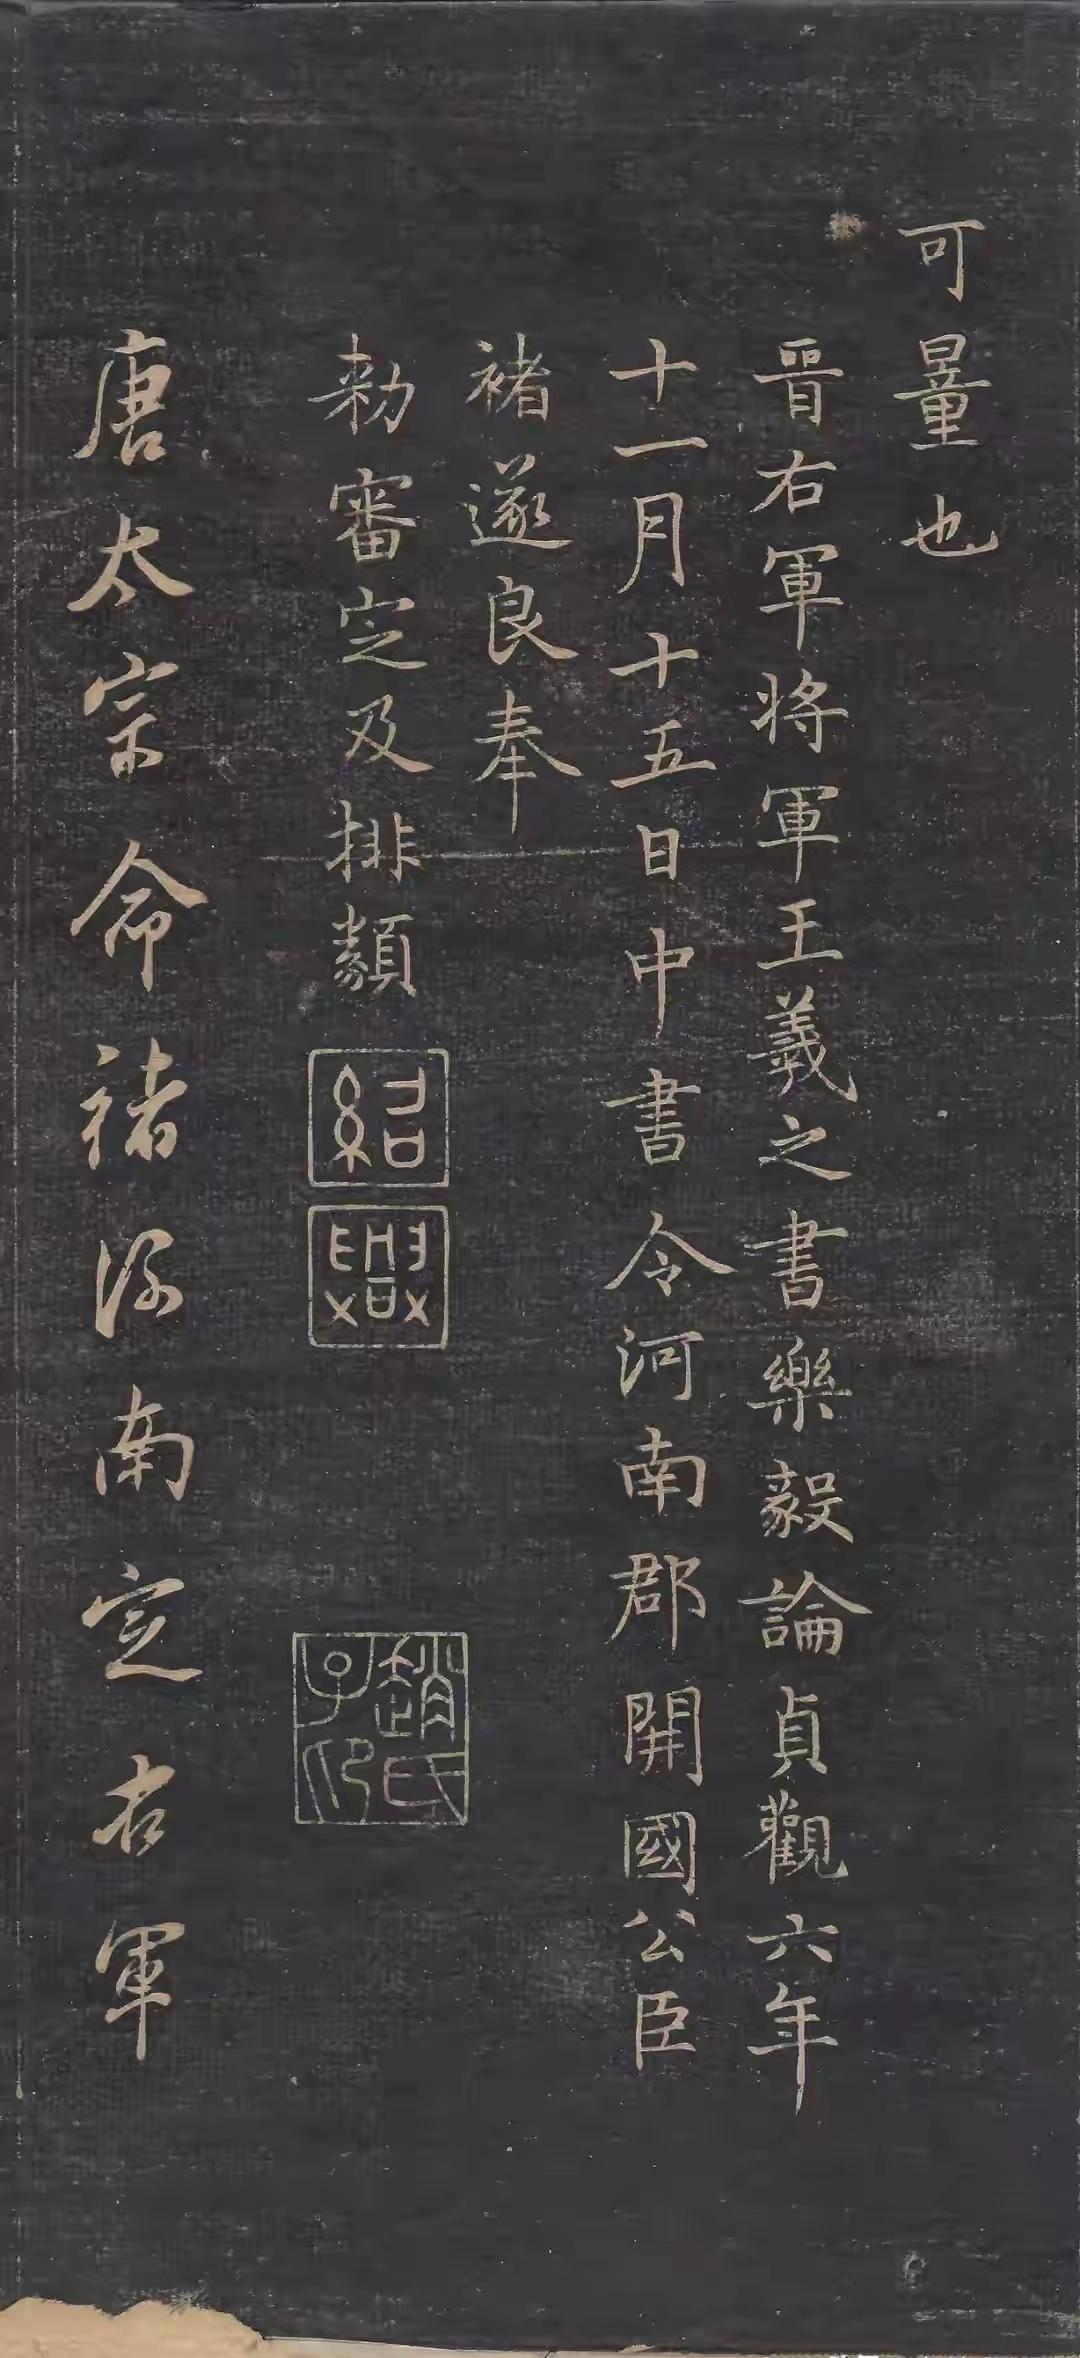 可量也
晉右軍将軍王羲之書樂毅論貞觀六年
十一月十五日中書令河南郡開國公臣
褚遂良奉
勑審定及排類
紹
興
趙氏子印
唐太宗命褚河南定右軍